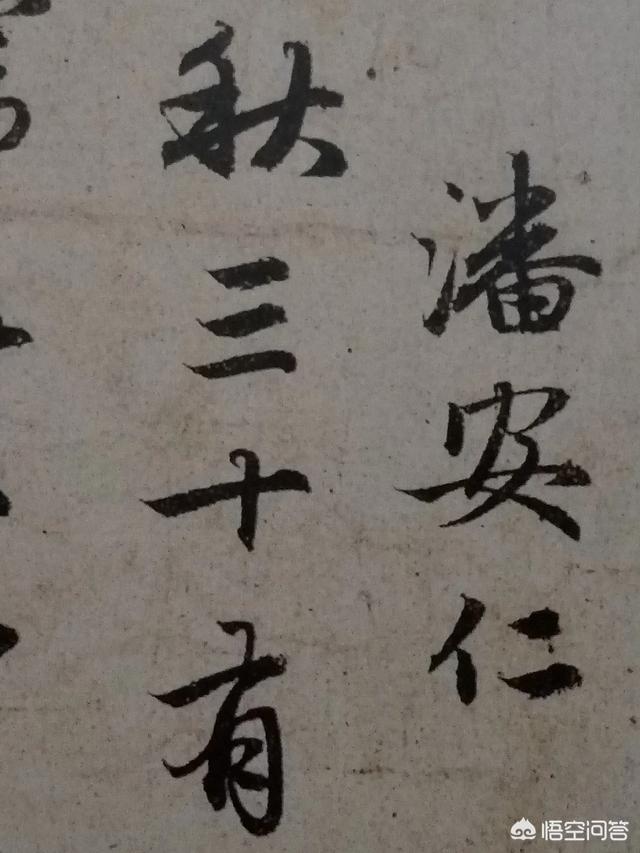 潘安仁
秋三十有
悟空问答